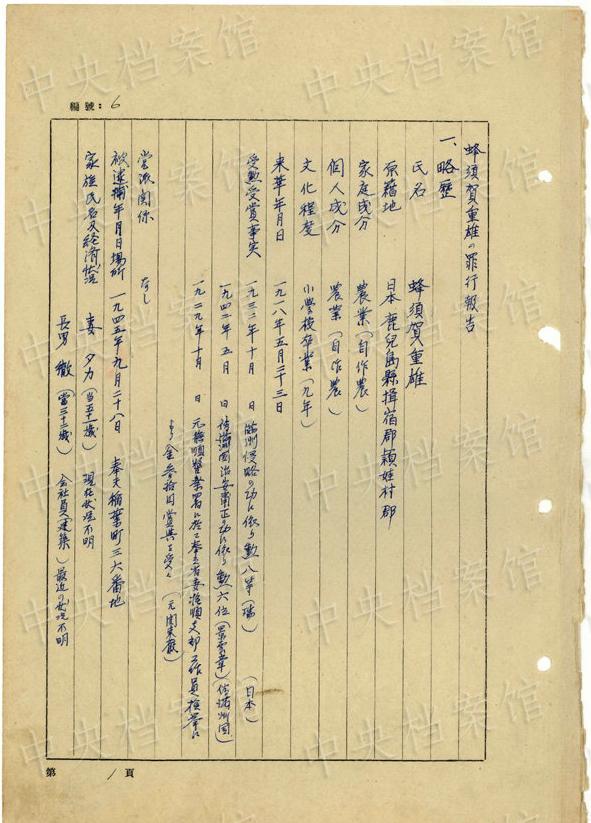 編號：6
蜂須賀重雄の罪行報告
一、略歴
氏名 蜂須賀重雄
原籍地 日本鹿児島縣揖宿郡頴娃村郡
家庭成分 農業（自作農）
個人成分 農業（自作農）
文化程度 小学校卒業（九年）
来華年月日 一九一八年五月二十三日
受勲受賞事実 一九三二年十月 日 満洲侵略の功に依り勲八等（瑞）（日本）
一九四二年五月 日 偽満国治安粛正の功に依り勲六位（景雲章）（偽満州国）
一九二九年十月 日 元撫順警察署に於て奉天省委撫順支部工作員検挙に
より金参拾円賞与を受く（元関東廳）
党派関係 なし
被逮捕年月日場所 一九四五年九月二十八日 奉天稲葉町三六番地
家族氏名及経済状況 妻 タカ（当五十一歳） 現在状況不明
長男 徹（當三十二歳） 会社員（建築） 最近の状況不明
第 1 頁
中央档案馆